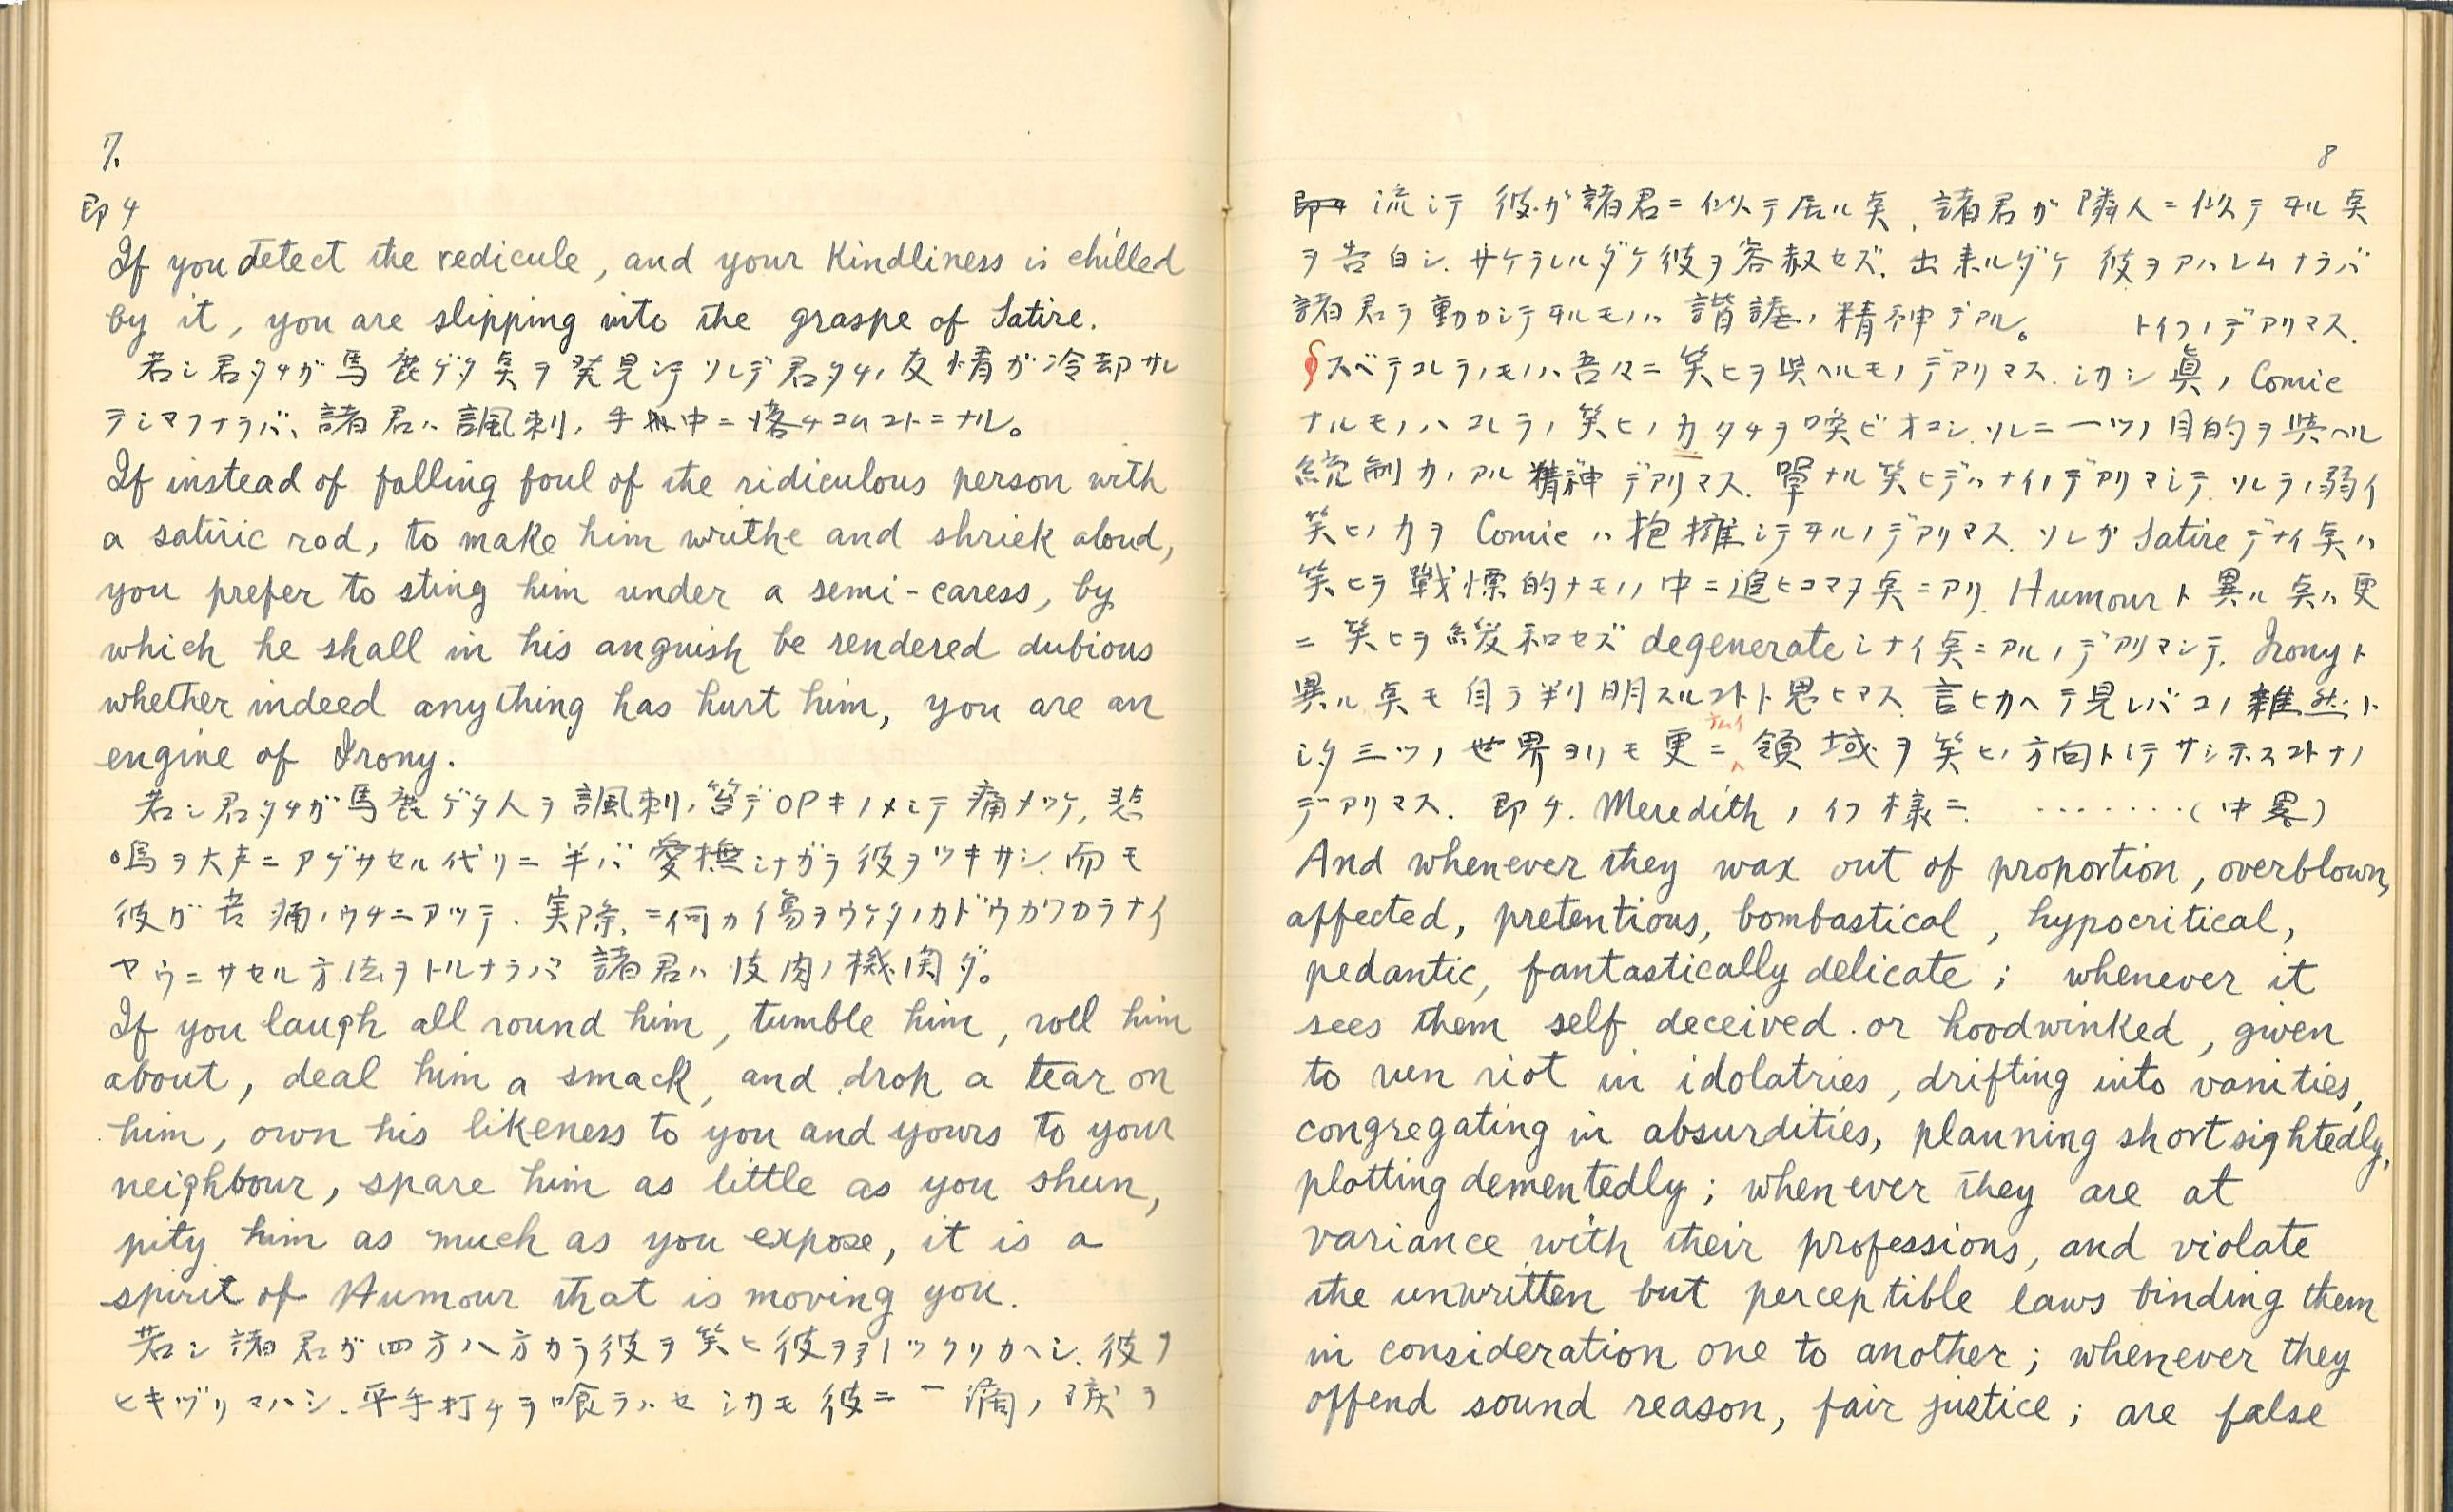 7.
即チ
If you detect the redicule, and your Kindliness is chilled
by it, you are slipping into the graspe of Satire.
若シ君タチガ馬鹿ゲタ点ヲ発見シテソレデ君タチノ友情ガ冷却サレ
テシマフナラバ、諸君ハ諷刺ノ手中ニ落チコムコトニナル。
If instead of falling foul of the ridiculous person with
a satiric rod, to make him writhe and shriek aloud,
you prefer to sting him under a semi-caress, by
which he shall in his anguish be rendered dubious
whether indeed anything has hurt him, you are an
engine of Irony.
若シ君タチガ馬鹿ゲタ人ヲ諷刺ノ笞デ叩キノメシテ痛メツケ、悲
鳴ヲ大声ニアゲサセル代リニ半バ愛撫シナガラ彼ヲツキサシ、而モ
彼ガ苦痛ノウチニアッテ、実際ニ何カ傷ヲウケタノカドウカワカラナイ
ヤウニサセル方法ヲトルナラバ諸君ハ皮肉ノ機関ダ。
If you laugh all round him, tumble him, roll him
about, deal him a smack, and drop a tear on
him, own his likeness to you and yours to your
neighbour, spare him as little as you shun,
pity him as much as you expose, it is a
spirit of Humour that is moving you.
若シ諸君ガ四方八方カラ彼ヲ笑ヒ彼ヲヒックリカヘシ、彼ヲ
ヒキヅリマハシ、平手打チヲ喰ラハセシカモ彼ニ一滴ノ涙ヲ
8
流シテ 彼ガ諸君ニ似テ居ル点、諸君ガ隣人ニ似テヰル点
ヲ告白シ、サケラレルダケ彼ヲ容赦セズ、出来ルダケ彼ヲアハレムナラバ
諸君ヲ動カシテヰルモノハ諧謔ノ精神デアル。 トイフノデアリマス.
スベテコレラノモノハ吾々ニ笑ヒヲ与ヘルモノデアリマス. シカシ眞ノComic
ナルモノハコレラノ笑ヒノカタチヲ喚ビオコシ、ソレニ一ツノ目的ヲ与ヘル
統制力ノアル精神デアリマス. 單ナル笑ヒデハナイノデアリマシテ. ソレラノ弱イ
笑ヒノ力ヲ Comic ハ抱擁シテヰルノデアリマス. ソレガ Satire デナイ点ハ
笑ヒヲ戰慄的ナモノノ中ニ追ヒコマヌ点ニアリ. Humour ト異ル点ハ更
ニ笑ヒヲ緩和セズ degenerate シナイ点ニアルノデアリマシテ. Irony ト
異ル点モ自ラ判明スルコトト思ヒマス. 言ヒカヘテ見レバコノ雑然ト
シタ三ツノ世界ヨリモ更ニ領域ヲ笑ヒノ方向トシテサシ示スコトナノ
デアリマス. 即チ. Meredith ノイフ様ニ. ........(中畧)
And whenever they wax out of proportion, overblown,
affected, pretentious, bombastical, hypocritical,
pedantic, fantastically delicate; whenever it
sees them self deceived or hoodwinked, given
to run riot in idolatries, drifting into vanities,
congregating in absurdities, planning short sightedly,
plotting dementedly; whenever they are at
variance with their professions, and violate
the unwritten but perceptible laws binding them
in consideration one to another; whenever they
offend sound reason, fair justice; are false